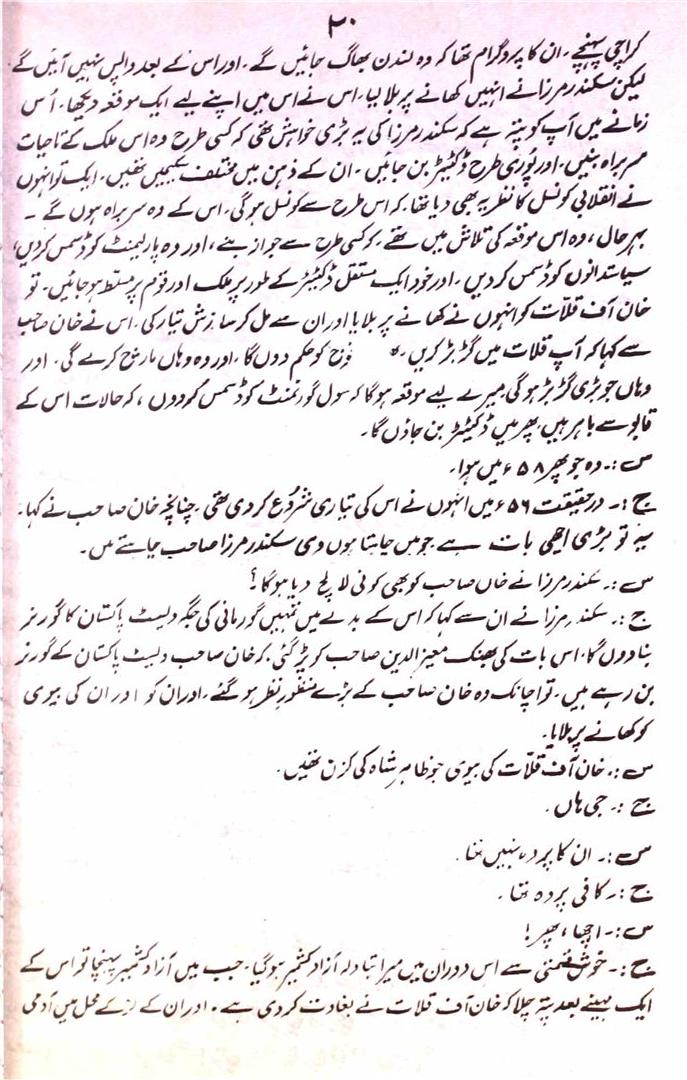 ۲۰
کراچی پہنچے۔ ان کا پروگرام تھا کہ وہ لندن بھاگ جائیں گے۔ اور اس کے بعد واپس نہیں آئیں گے۔
لیکن سکندر مرزا نے انہیں کھانے پر بلا لیا۔ اس نے اس میں اپنے لیے ایک موقعہ دیکھا۔ اُس
زمانے میں آپ کو پتہ ہے کہ سکندر مرزا کی یہ بڑی خواہش تھی کہ کسی طرح وہ اس ملک کے تاحیات
سربراہ بنیں۔ اور پُوری طرح ڈکٹیٹر بن جائیں۔ ان کے ذہن میں مختلف سکیمیں تھیں۔ ایک تو انہوں
نے انقلابی کونسل کا نظریہ بھی دیا تھا۔ کہ اس طرح سے کونسل ہو گی۔ اس کے وہ سربراہ ہوں گے۔
بہرحال، وہ اس موقعہ کی تلاش میں تھے۔ کہ کسی طرح سے جواز بنے، اور وہ پارلیمنٹ کو ڈسمس کر دیں،
سیاستدانوں کو ڈسمس کر دیں۔ اور خود ایک مستقل ڈکٹیٹر کے طور پر ملک اور قوم پر مسلط ہو جائیں۔ تو
خان آف قلاّت کو انہوں نے کھانے پر بلایا اور ان سے مل کر سازش تیار کی۔ اس نے خان صاحب
سے کہا کہ آپ قلات میں گڑبڑ کریں۔ فوج کو حکم دوں گا۔ اور وہ وہاں مارچ کرے گی۔ اور
وہاں جو بڑی گڑبڑ ہو گی میرے لیے موقعہ ہو گا کہ سول گورنمنٹ کو ڈسمس کر دوں، کہ حالات اس کے
قابو سے باہر ہیں۔ پھر میں ڈکٹیٹر بن جاؤں گا۔
س:۔ وہ جو پھر ۵۸ء میں ہوا۔
ج:۔ درحقیقت ۵۶ء میں انہوں نے اس کی تیاری شروع کر دی تھی۔ چنانچہ خان صاحب نے کہا۔
یہ تو بڑی اچھی بات ہے جو میں چاہتا ہوں وہی سکندر مرزا صاحب چاہتے ہیں۔
س:۔ سکندر مرزا نے خان صاحب کو بھی کوئی لالچ دیا ہو گا؟
ج:۔ سکندر مرزا نے ان سے کہا کہ اس کے بدلے میں تمہیں گورمانی کی جگہ ویسٹ پاکستان کا گورنر
بنا دوں گا۔ اس بات کی بھنک معیز الدین صاحب کو پڑ گئی، کہ خان صاحب ویسٹ پاکستان کے گورنر
بن رہے ہیں۔ تو اچانک وہ خان صاحب کے بڑے منظورِ نظر ہو گئے۔ اور ان کو اور ان کی بیوی
کو کھانے پر بلایا۔
س:۔ خان آف قلاّت کی بیوی جو ظاہر شاہ کی کزن تھیں۔
ج:۔ جی ہاں۔
س:۔ ان کا پردہ نہیں تھا۔
ج:۔ کافی پردہ تھا۔
س:۔ اچھا، پھر!
ج:۔ خوش قسمتی سے اس دوران میں میرا تبادلہ آزاد کشمیر ہو گیا۔ جب میں آزاد کشمیر پہنچا تو اس کے
ایک مہینے بعد پتہ چلا کہ خان آف قلات نے بغاوت کر دی ہے۔ اور ان کے محل میں آدمی